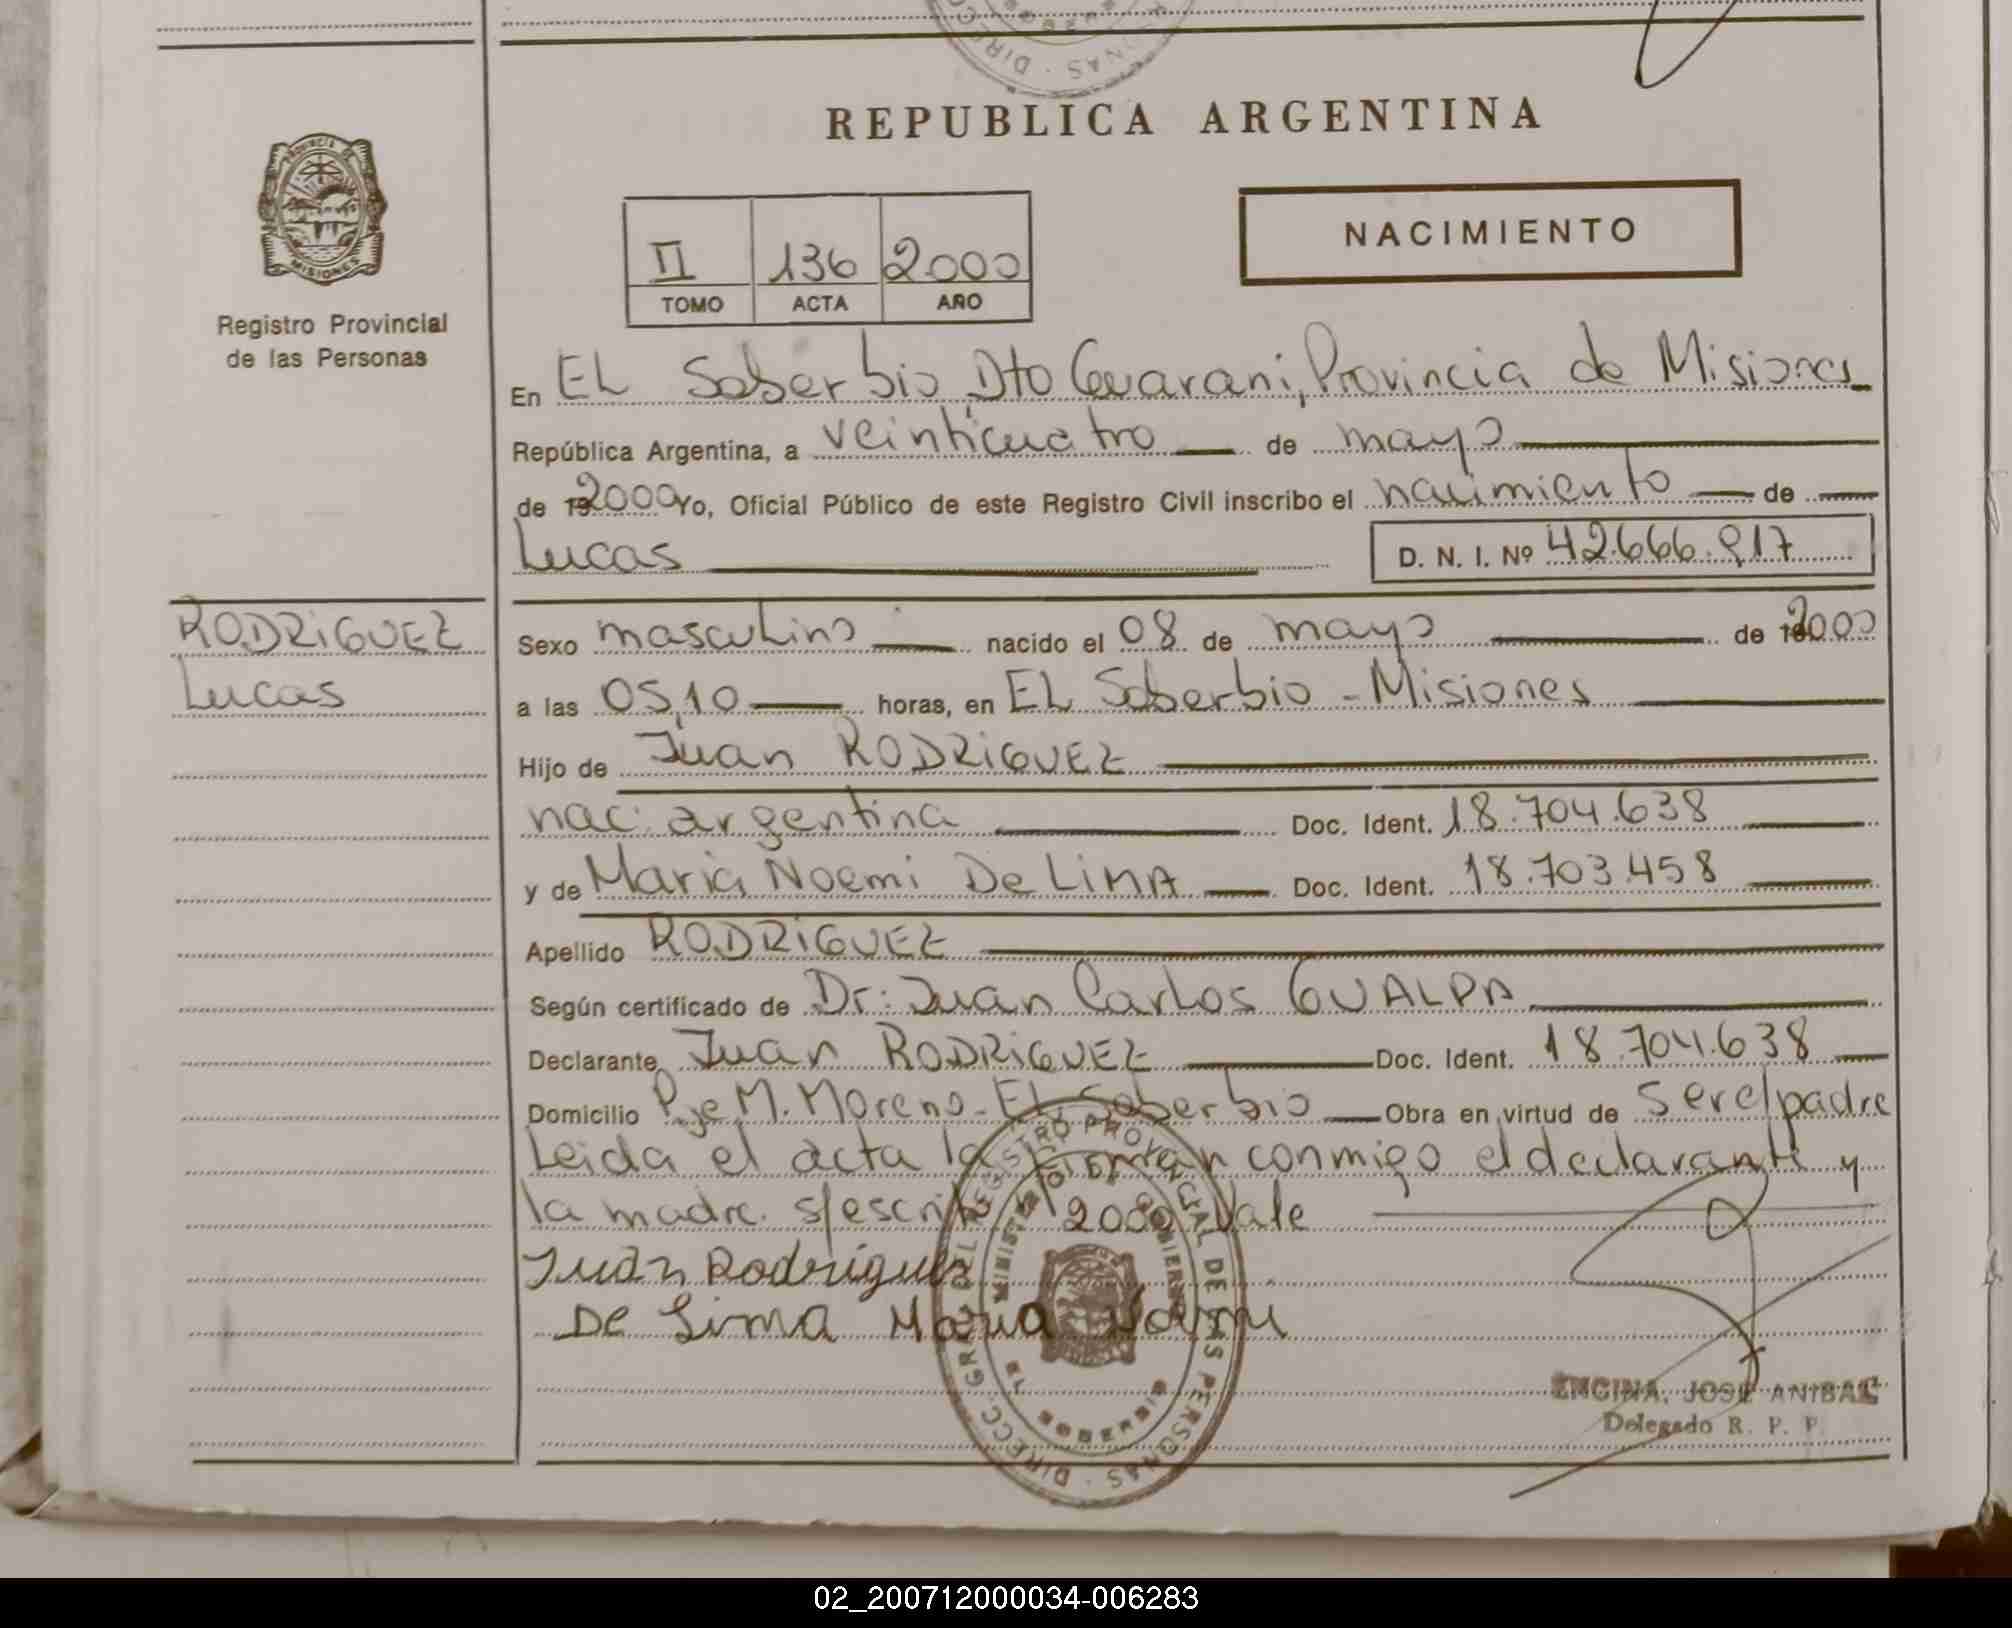 REPUBLICA ARGENTINA
NACIMIENTO
II 136 2000
TOMO ACTA AÑO
PROVINCIA DE
MISIONES
Registro Provincial
de las Personas
En EL Soberbio Dto Guarani, Provincia de Misiones
República Argentina, a veinticuatro de mayo
de 192000 Yo, Oficial Público de este Registro Civil inscribo el nacimiento de
Lucas D. N. I. Nº 42.666.917
RODRIGUEZ
Lucas
Sexo masculino nacido el 08 de mayo de 2000
a las 05,10 horas, en EL Soberbio - Misiones
Hijo de Juan RODRIGUEZ
nac. argentina Doc. Ident. 18.704.638
y de Maria Noemi De LiMA Doc. Ident. 18.703.458
Apellido RODRIGUEZ
Según certificado de Dr: Juan Carlos GUALPA
Declarante Juan RODRIGUEZ Doc. Ident. 18.704.638
Domicilio Pje M. Moreno - EL Soberbio Obra en virtud de ser el padre
Leida el acta la firman conmigo el declarante y
la madre. s/escrito 2000 Vale
Juan Rodriguez
De Lima Maria Noemi
DIRECC. GRAL DEL REGISTRO PROVINCIAL DE LAS PERSONAS
MINISTERIO DE GOBIERNO
EL SOBERBIO
ENCINA, JOSE ANIBAL
Delegado R. P. P.
02_200712000034-006283